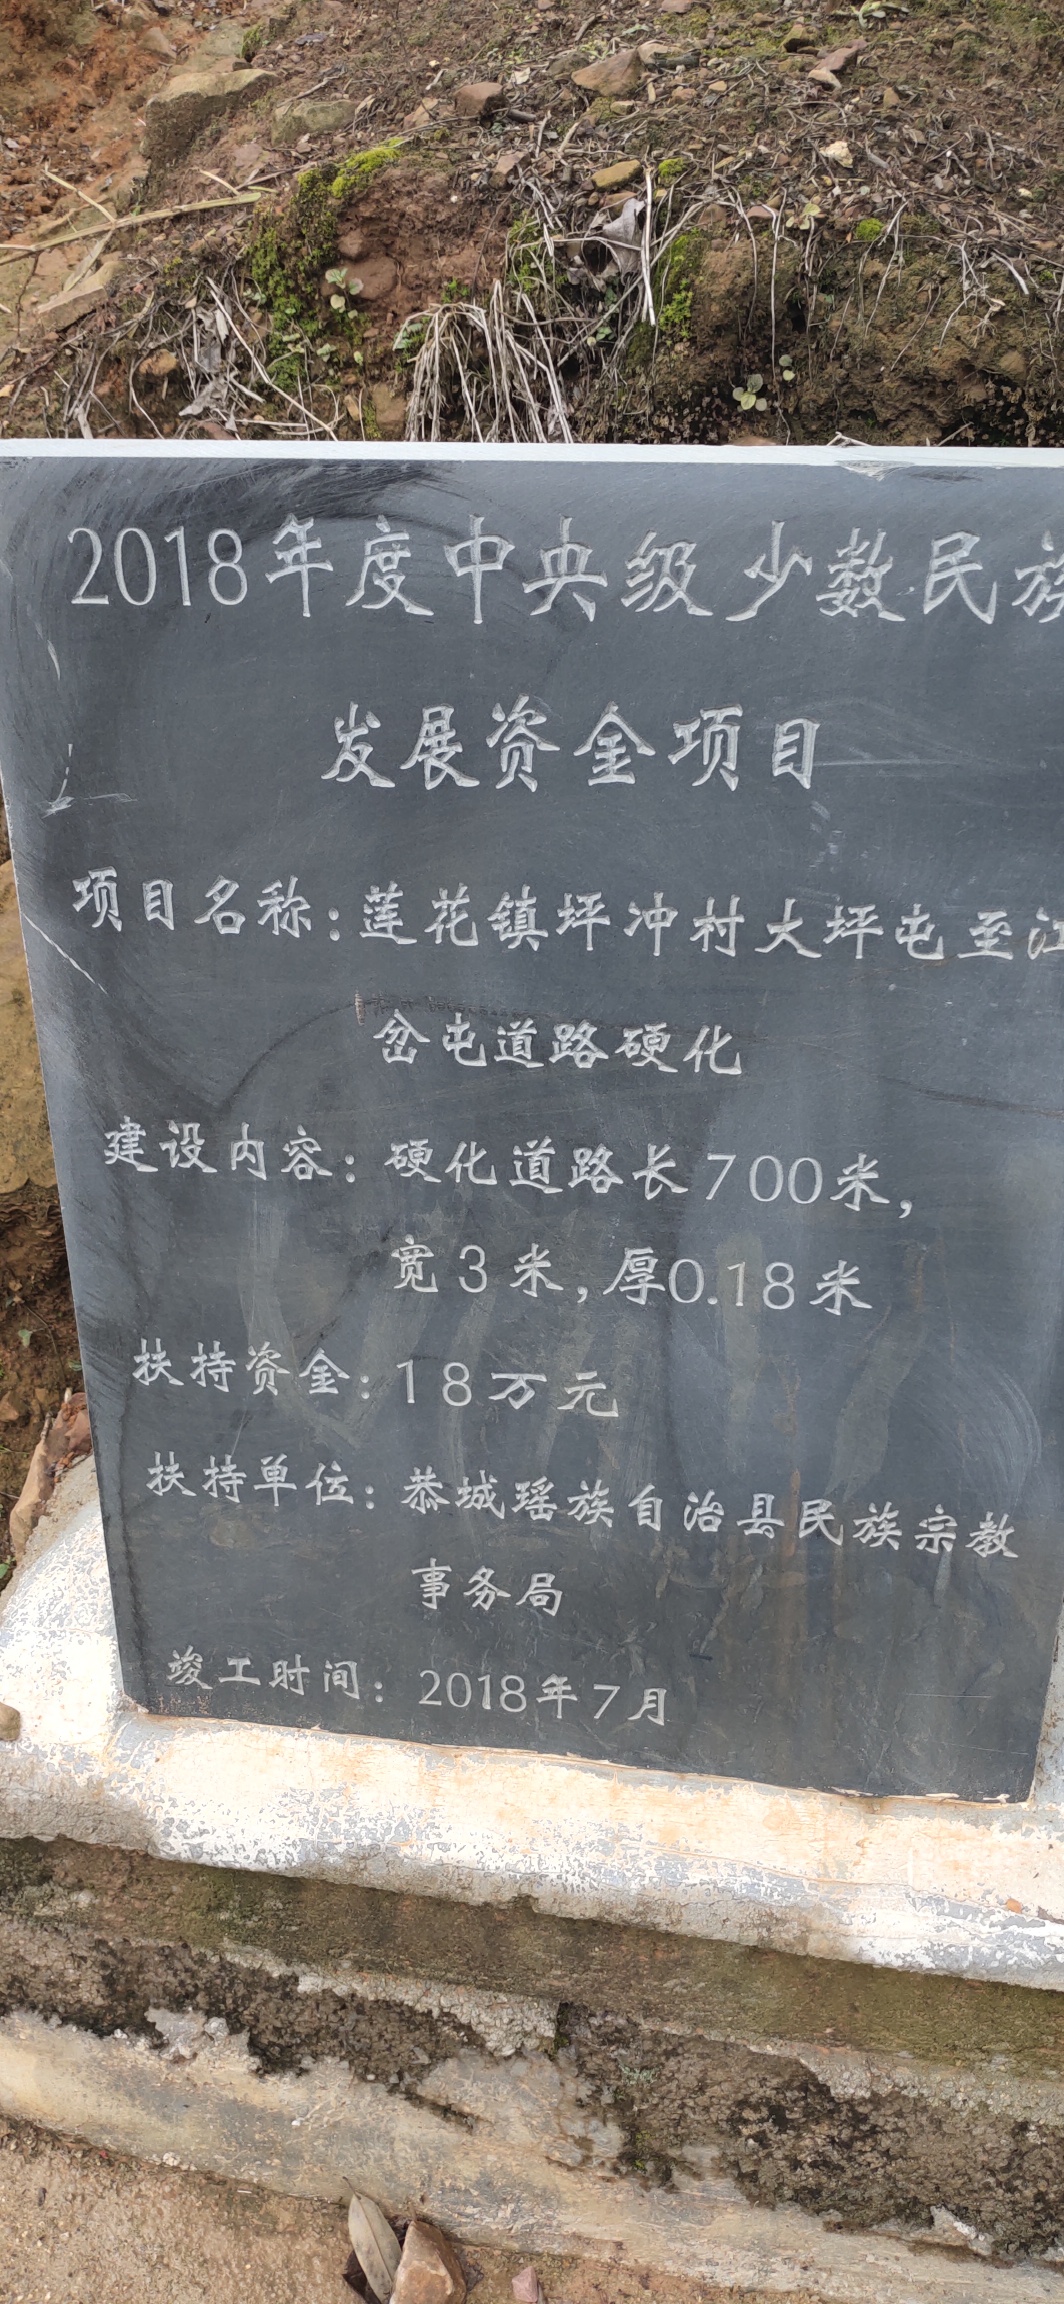 2018年度中央级少数民族
发展资金项目
项目名称：莲花镇坪冲村大坪屯至江
岔屯道路硬化
建设内容：硬化道路长700米，
宽3米，厚0.18米
扶持资金：18万元
扶持单位：恭城瑶族自治县民族宗教
事务局
竣工时间：2018年7月